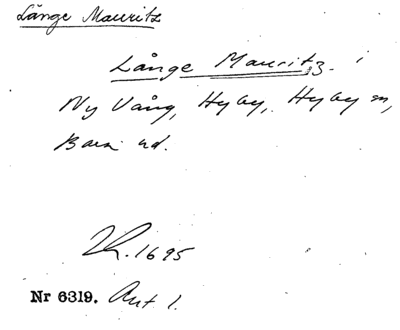 Långe Mauritz
Långe Mauritz. i
Ny Vång, Hyby, Hyby sn,
Bara hd.
R. 1695
Nr 6319. Ant 1.